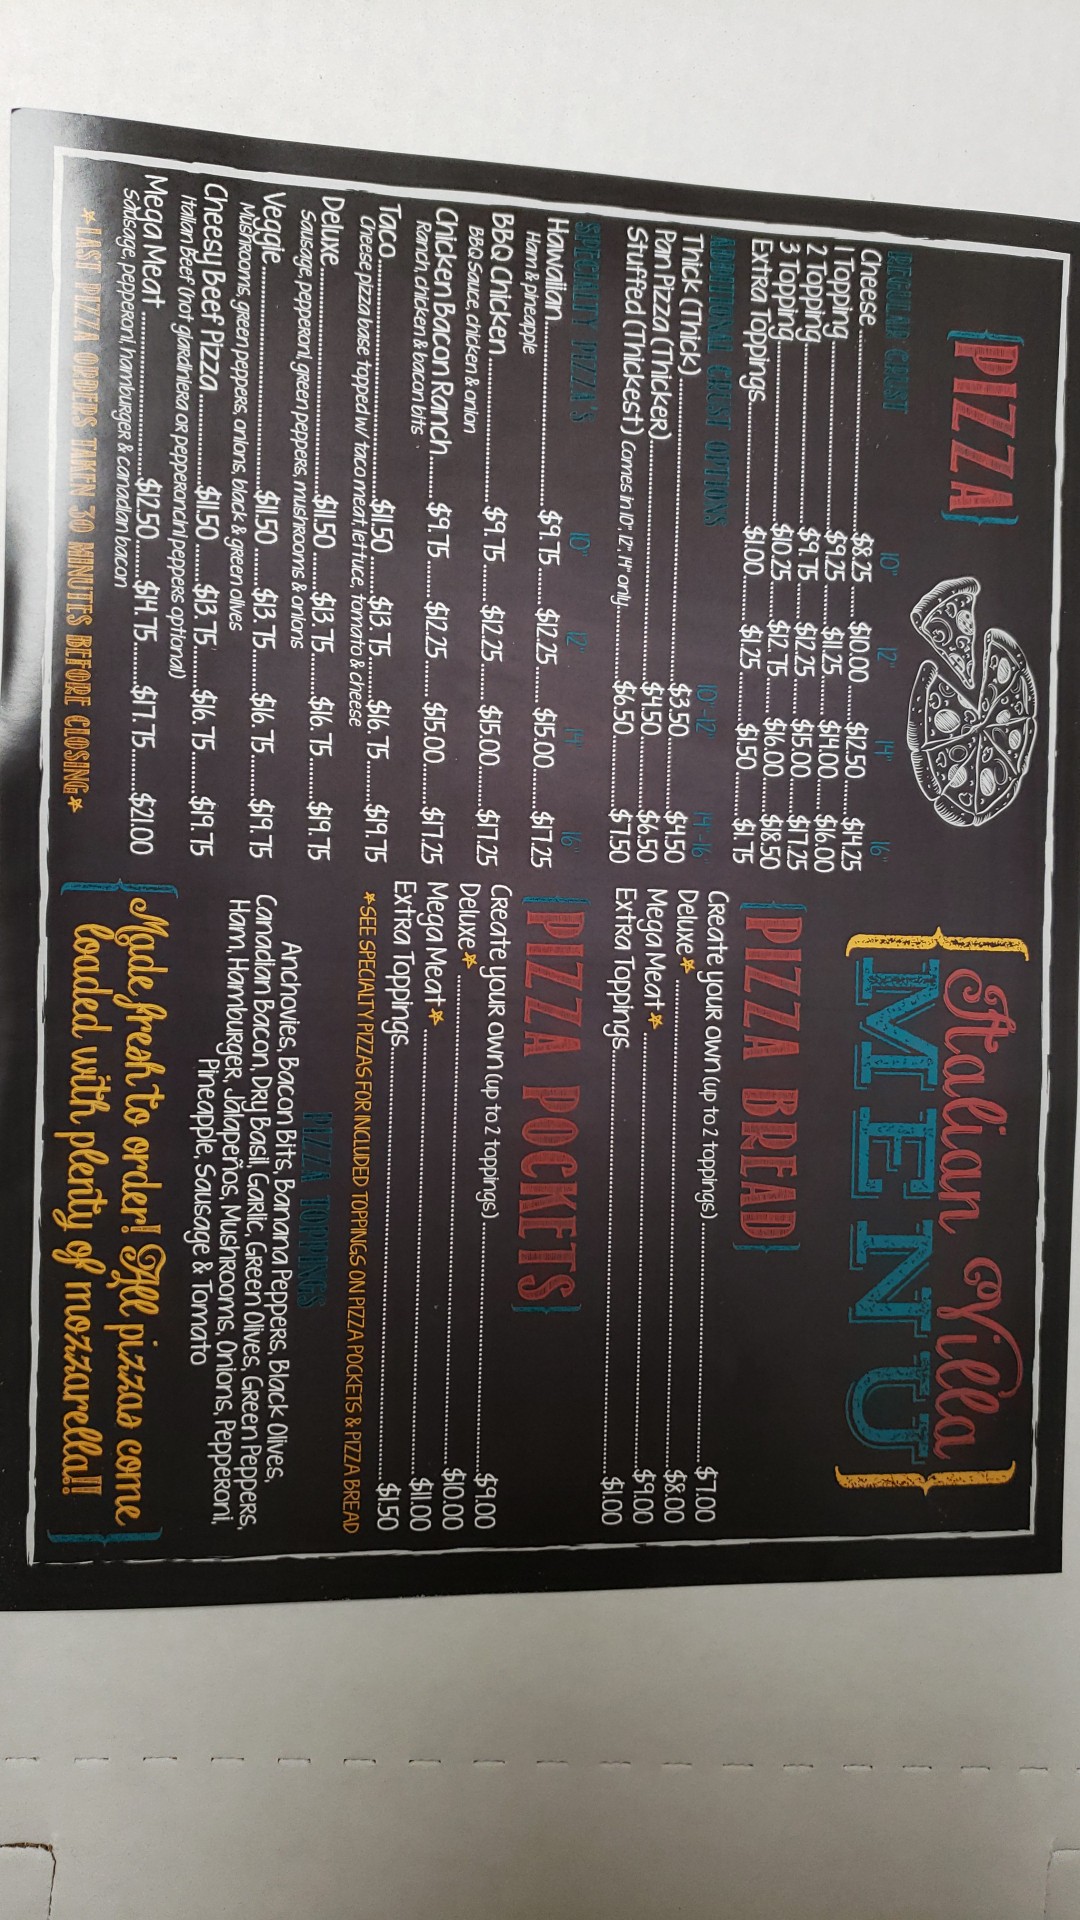 Italian Villa
MENU
PIZZA
REGULAR CRUST 10" 12" 14" 16"
Cheese $8.25 $10.00 $12.50 $14.25
1 Topping $9.25 $11.25 $14.00 $16.00
2 Topping $9.75 $12.25 $15.00 $17.25
3 Topping $10.25 $12.75 $16.00 $18.50
Extra Toppings $1.00 $1.25 $1.50 $1.75
ADDITIONAL CRUST OPTIONS 10"-12" 14"-16"
Thick (Thick) $3.50 $4.50
Pan Pizza (Thicker) $4.50 $6.50
Stuffed (Thickest) comes in 10", 12", 14" only $6.50 $7.50
SPECIALTY PIZZA'S 10" 12" 14" 16"
Hawaiian $9.75 $12.25 $15.00 $17.25
Ham & pineapple
BBQ Chicken $9.75 $12.25 $15.00 $17.25
BBQ Sauce, chicken & onion
Chicken Bacon Ranch $9.75 $12.25 $15.00 $17.25
Ranch, chicken & bacon bits
Taco $11.50 $13.75 $16.75 $19.75
Cheese pizza base topped w/ taco meat, lettuce, tomato & cheese
Deluxe $11.50 $13.75 $16.75 $19.75
Sausage, pepperoni, green peppers, mushrooms & onions
Veggie $11.50 $13.75 $16.75 $19.75
Mushrooms, green peppers, onions, black & green olives
Cheesy Beef Pizza $11.50 $13.75 $16.75 $19.75
Italian Beef (hot giardiniera or pepperoncini peppers optional)
Mega Meat $12.50 $14.75 $17.75 $21.00
Sausage, pepperoni, hamburger & canadian bacon
*LAST PIZZA ORDERS TAKEN 30 MINUTES BEFORE CLOSING*
PIZZA BREAD
Create your own (up to 2 toppings) $7.00
Deluxe* $8.00
Mega Meat* $9.00
Extra Toppings $1.00
PIZZA POCKETS
Create your own (up to 2 toppings) $9.00
Deluxe* $10.00
Mega Meat* $11.00
Extra Toppings $1.50
*SEE SPECIALTY PIZZAS FOR INCLUDED TOPPINGS ON PIZZA POCKETS & PIZZA BREAD
PIZZA TOPPINGS
Anchovies, Bacon Bits, Banana Peppers, Black Olives,
Canadian Bacon, Dry Basil, Garlic, Green Olives, Green Peppers,
Ham, Hamburger, Jalapeños, Mushrooms, Onions, Pepperoni,
Pineapple, Sausage & Tomato
Made fresh to order! All pizzas come
loaded with plenty of mozzarella!!